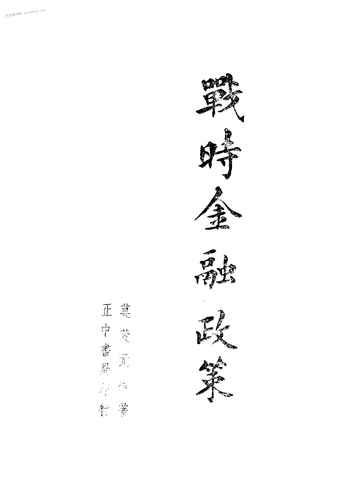 戰時金融政策
莫萱元著
正中書局印行